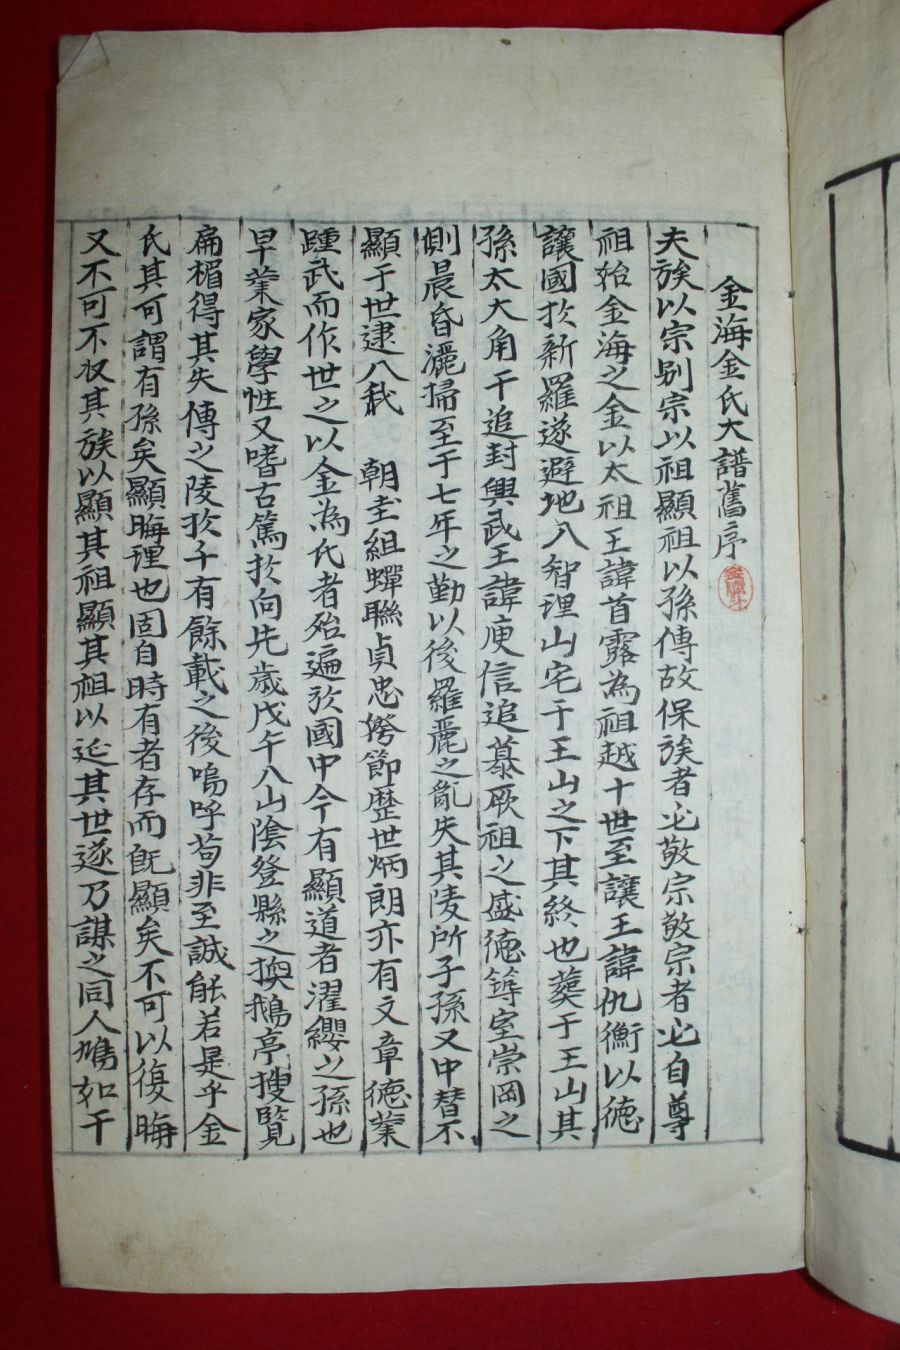 金海金氏大譜舊序
夫族以宗别宗以祖顯祖以孫傳故保族者必敬宗敬宗者必自尊
祖始金海之金以太祖王諱首露為祖越十世至讓王諱仇衡以德
讓國於新羅遂避地入智理山宅于王山之下其終也葬于王山其
孫太大角干追封興武王諱庾信追慕厥祖之盛德築室崇岡之
側晨昏灑掃至于七年之勤以後羅麗之亂失其陵所子孫又中替不
顯于世逮入我 朝圭組蟬聯貞忠姱節歷世炳朗亦有文章德業
踵武而作世之以金為氏者殆遍於國中今有顯道者濯纓之孫也
早業家學性又嗜古篤於向先歲戊午入山陰登縣之換鵝亭搜覧
扁楣得其失傳之陵於千有餘載之後嗚呼苟非至誠能若是乎金
氏其可謂有孫矣顯晦理也固自時有者存而旣顯矣不可以復晦
又不可不収其族以顯其祖顯其祖以延其世遂乃謀之同人鳩如干